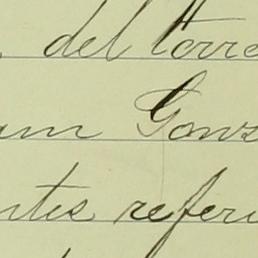 del torre
um Gons
ntes referi